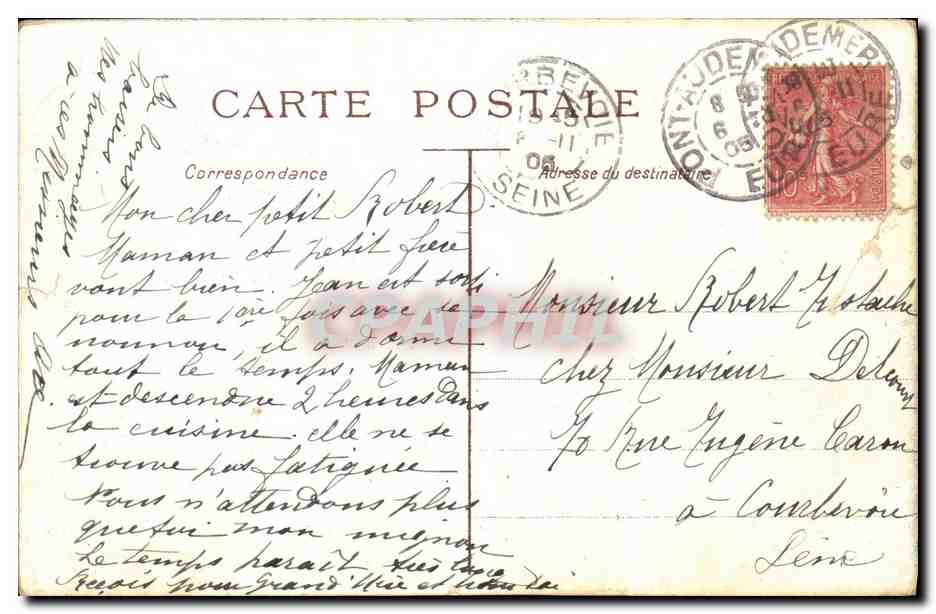 CARTE POSTALE
Correspondance
Adresse du destinataire
Mon cher petit Robert
Maman et petit frère
vont bien. Jean est sorti
pour la 1ère fois avec sa
nounou, il a dormi
tout le temps. Maman
est descendue 2 heures dans
la cuisine. elle ne se
trouve pas fatiguée
Nous n'attendons plus
que toi mon mignon
Le temps paraît très long
Reçois pour Grand Mère et
baisers
Mes hommages
à
Monsieur Robert
chez Monsieur Delcourt
70 Rue Eugène Caron
à Courbevoie
Seine
PONT-AUDEMER
8
6
05
EURE
AUDEMER
EURE
11
05
SEINE
CPAPHIL